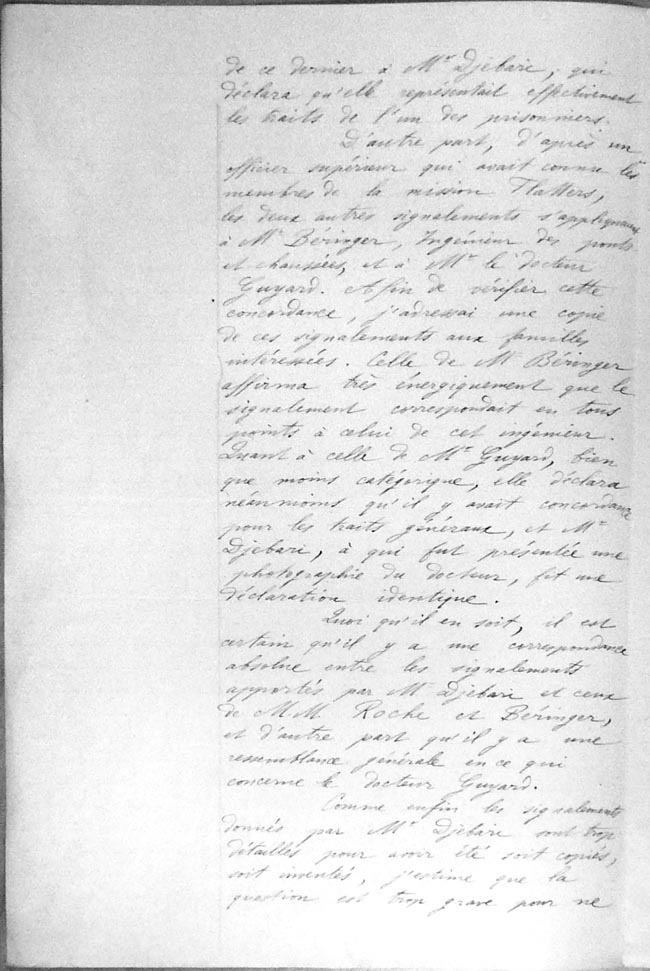 de ce dernier à Mr Djebari, qui
déclara qu'elle représentait effectivement
les traits de l'un des prisonniers.
D'autre part, d'après un
officier supérieur qui avait connu les
membres de la mission Flatters,
les deux autres signalements s'appliquaient
à Mr Béringer, Ingénieur des ponts
et chaussées, et à Mr le docteur
Guyard. Afin de vérifier cette
concordance, j'adressai une copie
de ces signalements aux familles
intéressées. Celle de Mr Béringer
affirma très énergiquement que le
signalement correspondait en tous
points à celui de cet ingénieur.
Quant à celle de Mr Guyard, bien
que moins catégorique, elle déclara
néanmoins qu'il y avait concordance
pour les traits généraux, et Mr
Djebari, à qui fut présentée une
photographie du docteur, fit une
déclaration identique.
Quoi qu'il en soit, il est
certain qu'il y a une correspondance
absolue entre les signalements
apportés par Mr Djebari et ceux
de MM. Roche et Béringer,
et d'autre part qu'il y a une
ressemblance générale en ce qui
concerne le docteur Guyard.
Comme enfin les signalements
donnés par Mr Djebari sont trop
détaillés pour avoir été soit copiés,
soit inventés, j'estime que la
question est trop grave pour ne